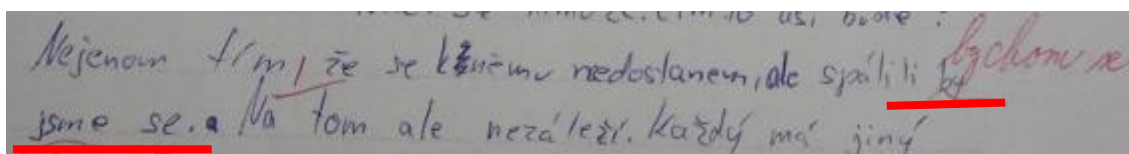 bude.
Nejenom tím, že se k němu nedostanem, ale spálili by bychom se
jsme se. Na tom ale nezáleží. Každý má jiný